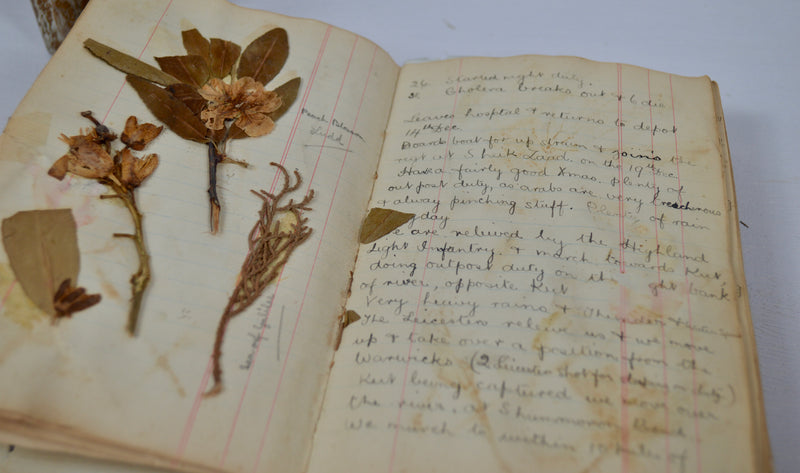 Ludd
Sea of Galilee
26. Started night duty.
Cholera breaks out & 6 die
Leaves hospital & returns to depot
14th Dec
Boards boat for up stream & joins the
regt at Shaik Saad. on the 19th Dec
Have a fairly good Xmas. plenty of
out post duty, as arabs are very treacherous
& alway pinching stuff. Plenty of rain
day
e are relieved by the Highland
Light Infantry. & march towards Kut,
doing outpost duty on th ght bank
of river, opposite Kut
Very heavy rains & Thunder &
The Leicesters relieve us & we move
up & take over a position from the
Warwicks (2 Leicesters shot for duty)
Kut being captured we move over
the river, at Shummoran Bend
We march to within 10 miles of